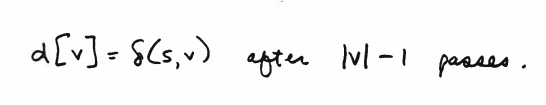 d[v] = δ(s,v) after |v| - 1 passes.